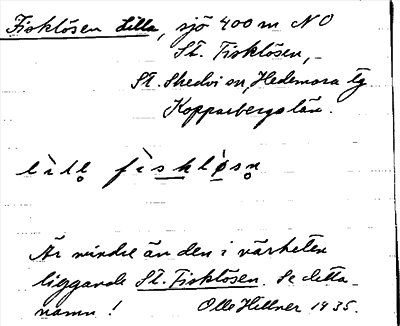 Fisklösen Lilla, sjö 400 m NO
St. Fisklösen,
St. Skedvi sn, Hedemora tg
Kopparbergs län.
lìlḷ fìsklø̣sṇ
Är mindre än den i närheten
liggande St. Fisklösen. Se detta
namn! Olle Hellner 1935.